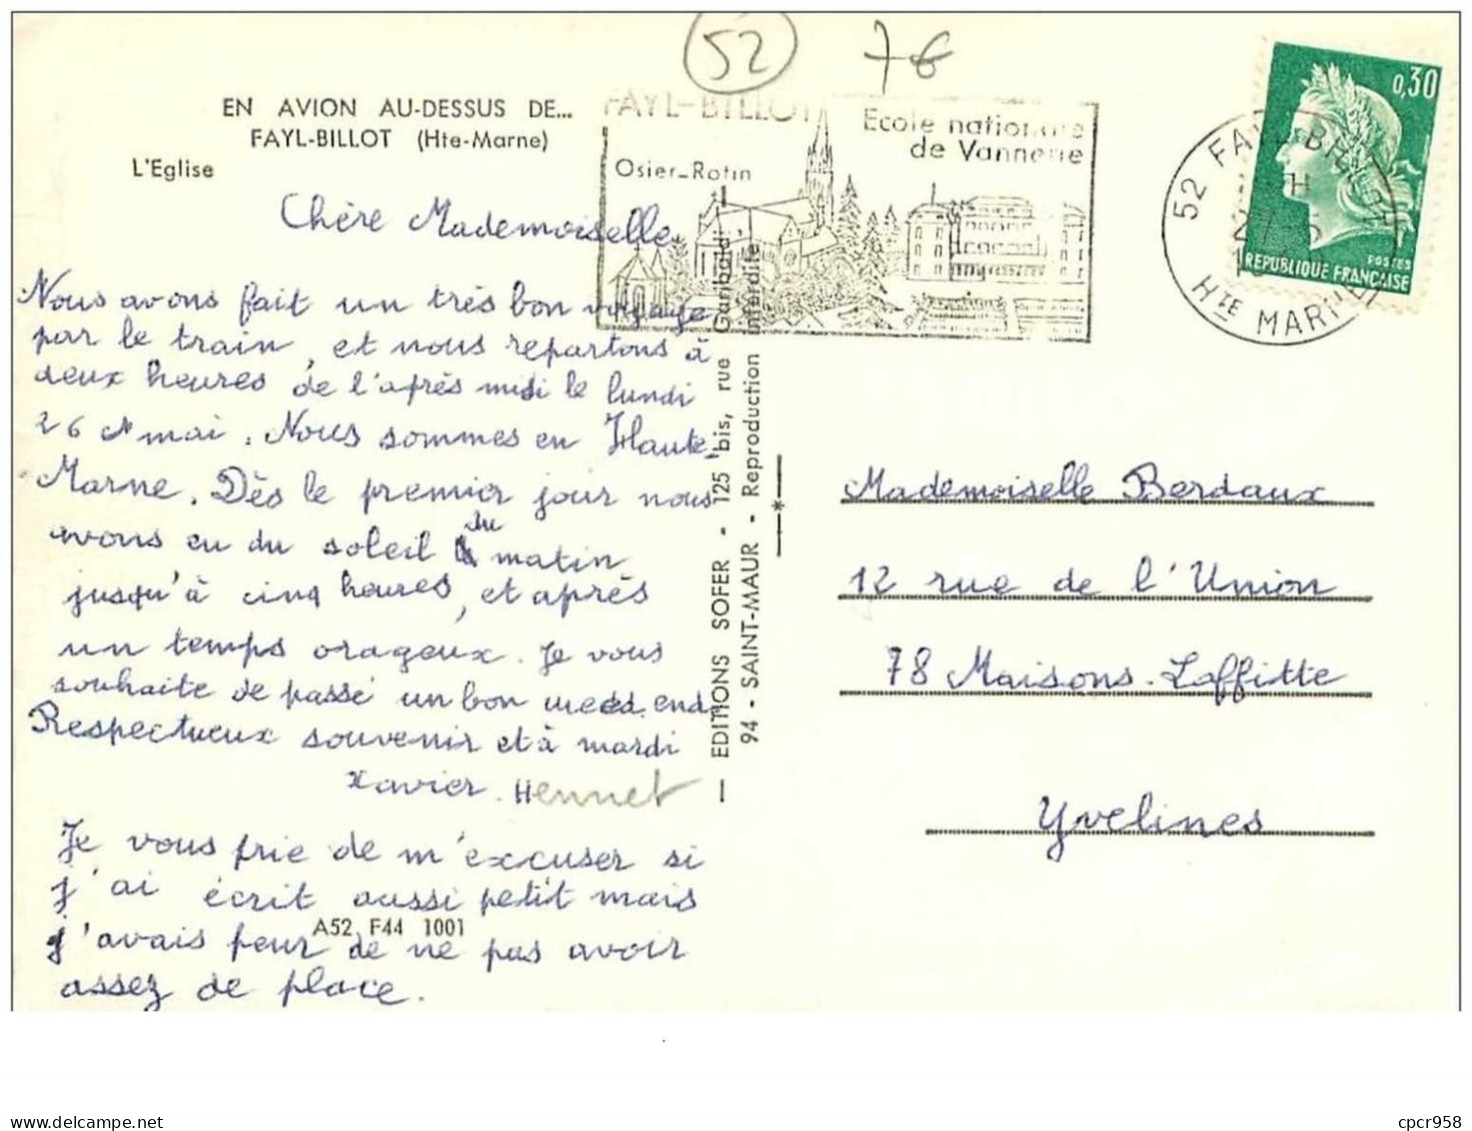 52
7€
EN AVION AU-DESSUS DE...
FAYL-BILLOT (Hte-Marne)
L'Eglise
FAYL-BILLOT
Ecole nationale
de Vannerie
Osier-Rotin
0,30
POSTES
REPUBLIQUE FRANÇAISE
52 FAYL-BILLOT
HTE MARNE
Chère Mademoiselle,
Nous avons fait un très bon voyage
par le train, et nous repartons à
deux heures de l'après midi le lundi
26 mai. Nous sommes en Haute-
Marne. Dès le premier jour nous
avons eu du soleil du matin
jusqu'à cinq heures, et après
un temps orageux. Je vous
souhaite de passé un bon week end.
Respectueux souvenir et à mardi
Xavier. Hennet
Je vous prie de m'excuser si
j'ai écrit aussi petit mais
j'avais peur de ne pas avoir
assez de place.
A52 F44 1001
EDITIONS SOFER - 125 bis, rue Garibaldi
94 - SAINT-MAUR - Reproduction interdite
Mademoiselle Berdaux
12 rue de l'Union
78 Maisons-Laffitte
Yvelines
cpcr958